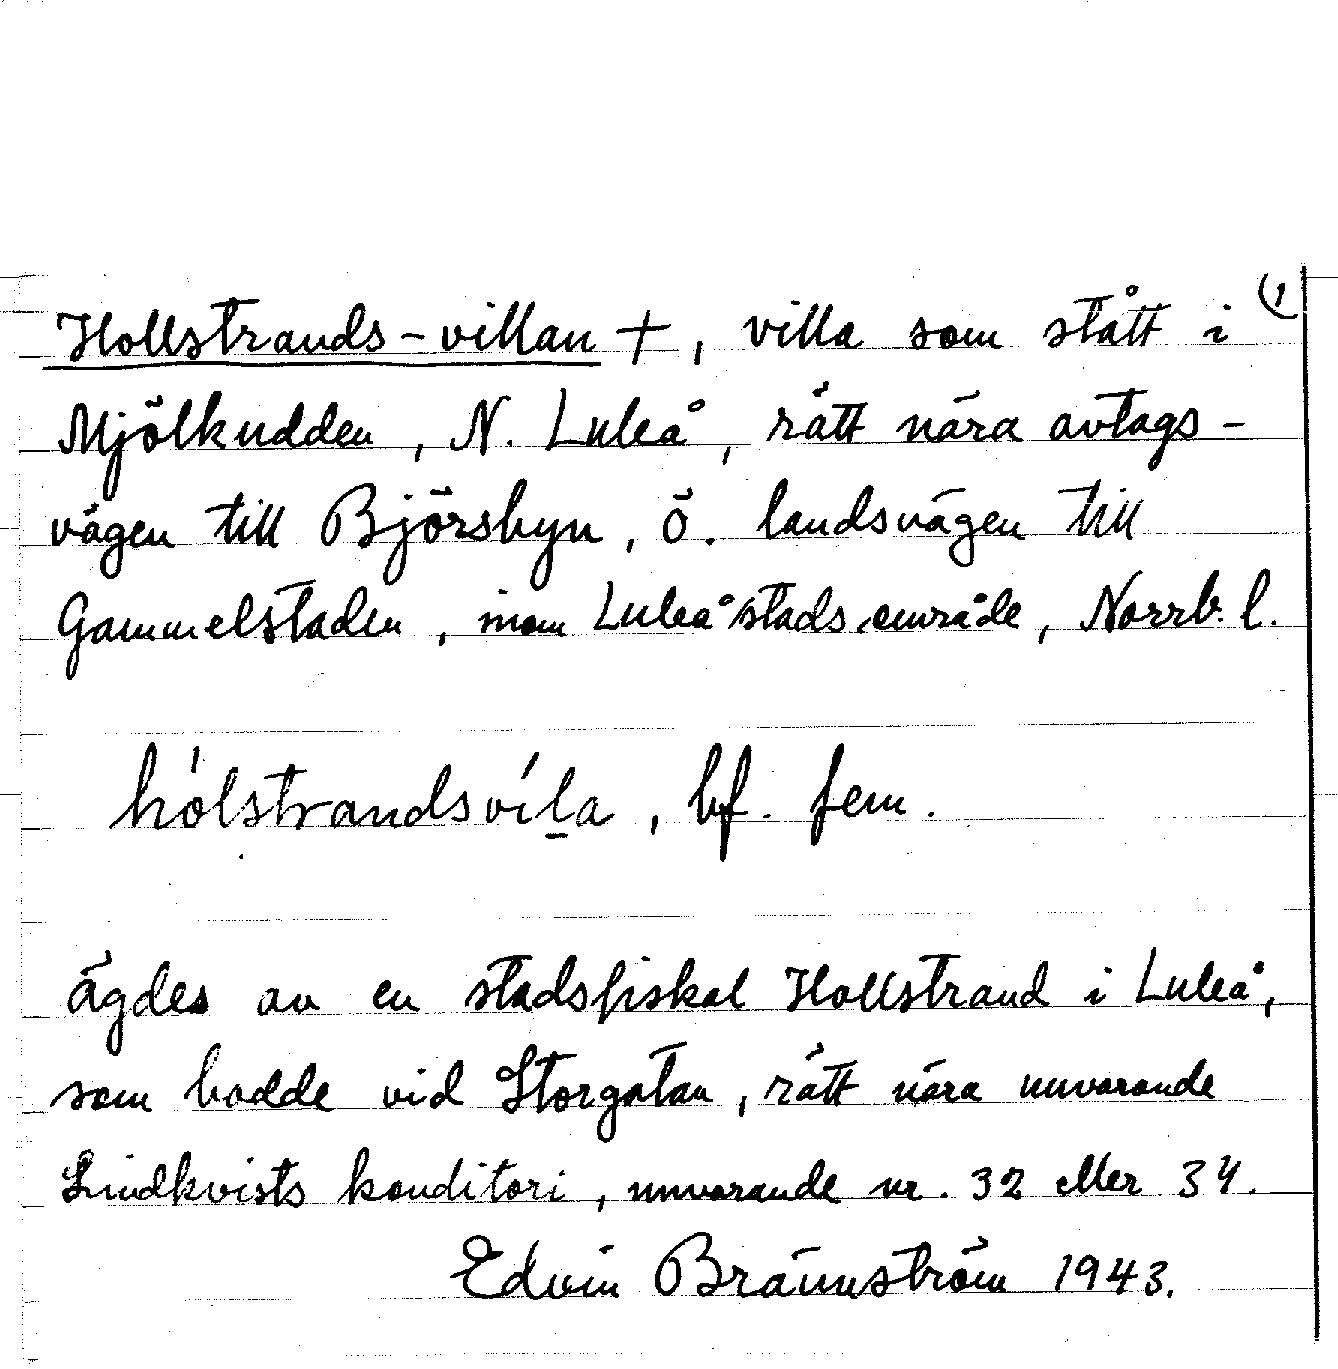 Hollstrands-villan +, villa som stått i (1
Mjölkudden, N. Luleå, rätt nära avtags-
vägen till Björsbyn, ö. landsvägen till
Gammelstaden, inom Luleå stads område, Norrb. l.
hólstrandsvíl̲a, bf. fem.
ägdes av en stadsfiskal Hollstrand i Luleå,
som bodde vid Storgatan, rätt nära nuvarande
Lindkvists konditori, nuvarande nr. 32 eller 34.
Edvin Brännström 1943.